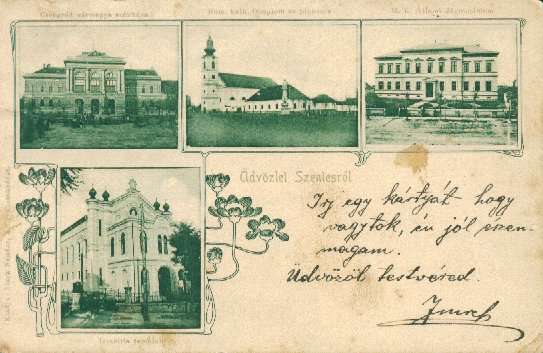 Csongrád vármegye székháza
Róm. kath. templom és
M. K. Állami főgymnasium
Üdvözlet Szentesről
Irj egy kártyát hogy
vagytok, én jól
magam.
Üdvözöl testvéred.
Imre
Izraelita templom